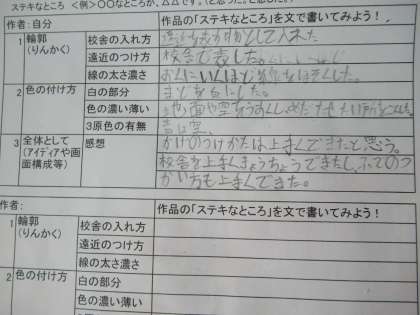 ステキなところ <例>〇〇なところが、△△です。(と思った。と感じた。)
作者:自分
作品の「ステキなところ」を文で書いてみよう!
1 輪郭(りんかく)
校舎の入れ方
として入れた
遠近のつけ方
校舎で表した。
線の太さ濃さ
おくにいくほど をほそくした。
2 色の付け方
白の部分
まどを白にした。
色の濃い薄い
3原色の有無
3 全体として(アイディアや画面構成等)
感想
かげのつけかたは上手くできたと思う。
校舎を上手くきょうちょうできたし、ふでのつ
かい方も上手くできた。
作者:
作品の「ステキなところ」を文で書いてみよう!
1 輪郭(りんかく)
校舎の入れ方
遠近のつけ方
線の太さ濃さ
2 色の付け方
白の部分
色の濃い薄い